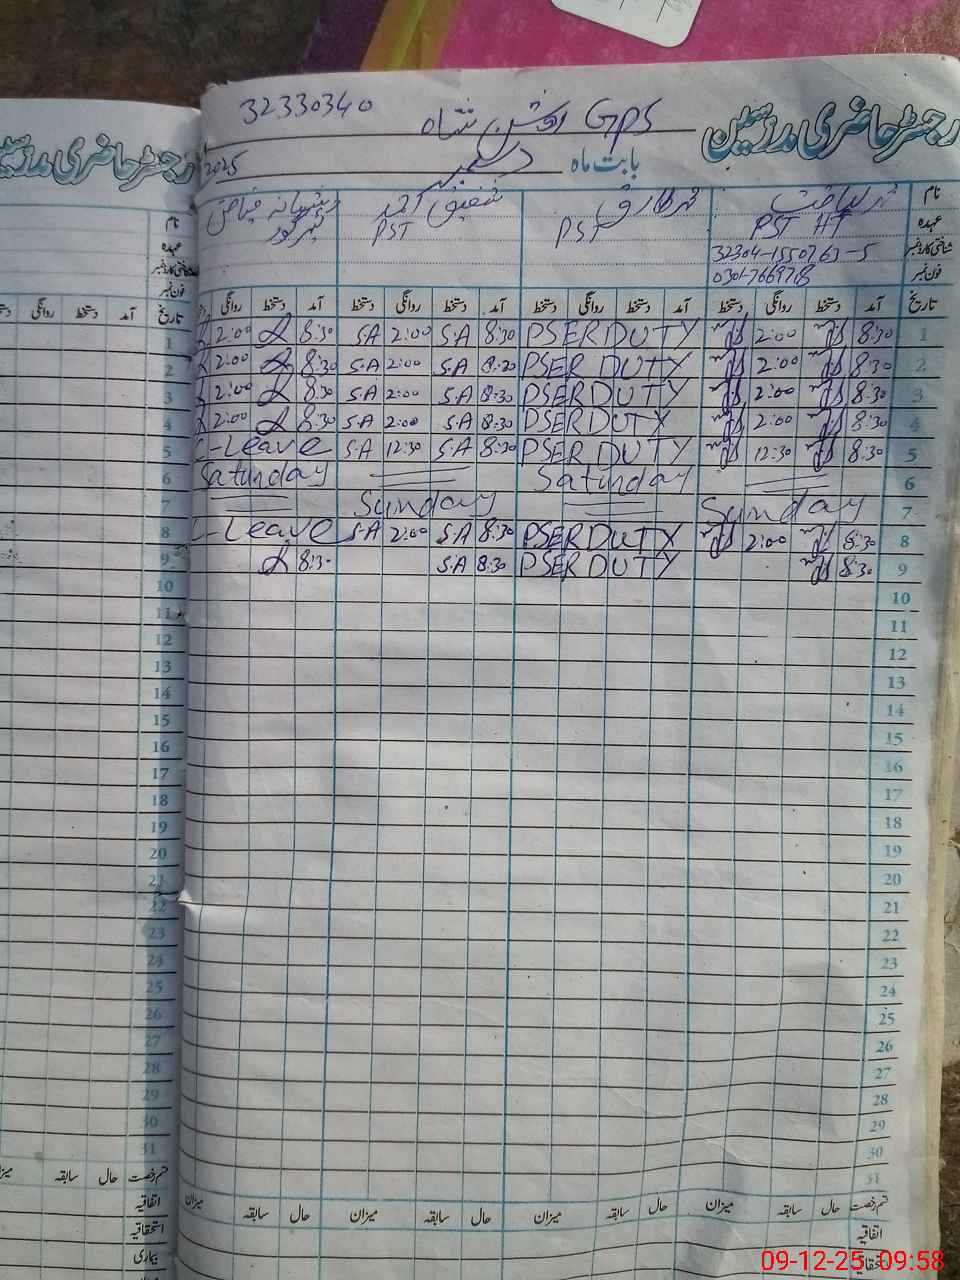 32330340
GPS شاہ
رجسٹر حاضری مدرسین
2025 دسمبر بابت ماہ
نام محمد لیاقت محمد طارق شفیق احمد
عہدہ PST HT PST PST
شناختی کارڈ نمبر 32304-1550763-5
فون نمبر 0301-7669718
تاریخ آمد دستخط روانگی دستخط آمد دستخط روانگی دستخط آمد دستخط روانگی دستخط آمد دستخط روانگی
1 8:30 2:00 PSER DUTY 8:30 S.A 2:00 S.A 8:30 2:00
2 8:30 2:00 PSER DUTY 8:30 S.A 2:00 S.A 8:30 2:00
3 8:30 2:00 PSER DUTY 8:30 S.A 2:00 S.A 8:30 2:00
4 8:30 2:00 PSER DUTY 8:30 S.A 2:00 S.A 8:30 2:00
5 8:30 12:30 PSER DUTY 8:30 S.A 12:30 S.A C-Leave
6 Saturday Saturday
7 Sunday Sunday
8 8:30 2:00 PSER DUTY 8:30 S.A 2:00 S.A C-Leave
9 8:30 PSER DUTY 8:30 S.A 8:30
10
11
12
13
14
15
16
17
18
19
20
21
22
23
24
25
26
27
28
29
30
31
قسم رخصت حال سابقہ میزان حال سابقہ میزان حال سابقہ میزان حال سابقہ میزان
اتفاقیہ
استحقاقیہ
رجسٹر حاضری مدرسین
نام
عہدہ
شناختی کارڈ نمبر
فون نمبر
تاریخ آمد دستخط روانگی
1
2
3
4
5
6
7
8
9
10
11
12
13
14
15
16
17
18
19
20
21
22
23
24
25
26
27
28
29
30
31
قسم رخصت حال سابقہ
اتفاقیہ
استحقاقیہ
بیماری
09-12-25 09:58